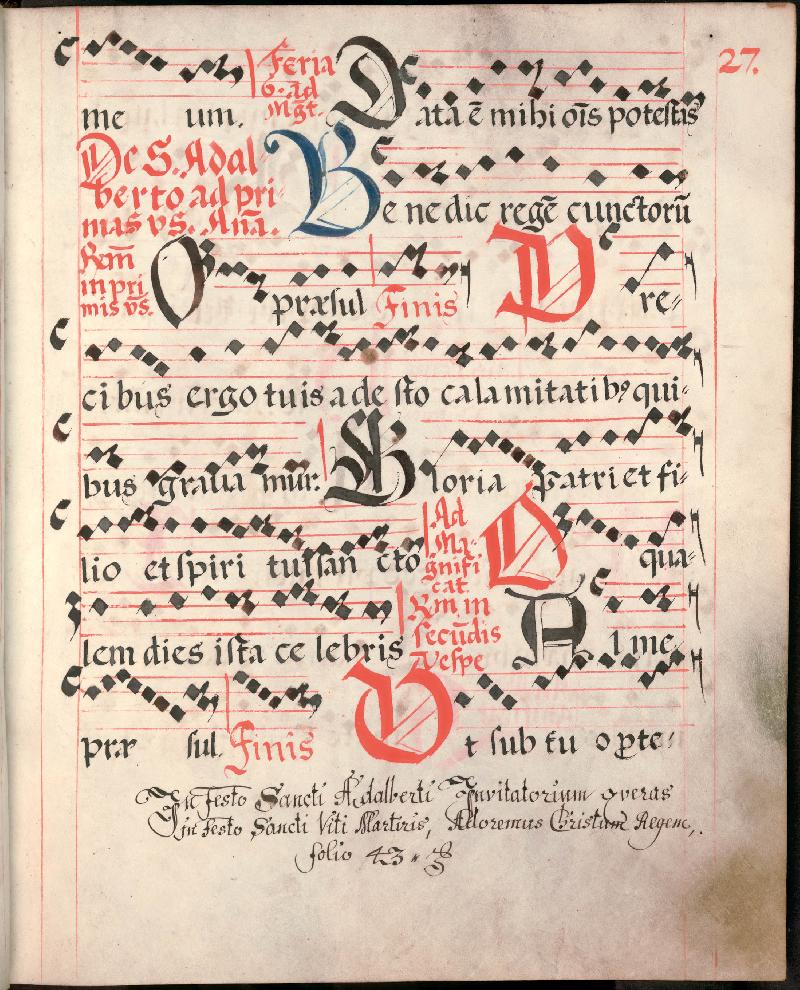 27.
me um. Feria 6. ad Mgt. Data ē mihi oīs potestas
De S. Adal-
berto ad pri-
mas vs. Anā.
Benedic regē cunctorū
Rem̄
in pri
mis vs.
O præsul Finis Pre-
cibus ergo tuis adesto calamitatibꝰ qui-
bus gravamur. Gloria patri et fi-
lio et spiritui san cto
Ad
Ma-
gnifi
cat.
O qua-
lem dies ista celebris
Rm in
secūdis
Vespe
Alme
præsul. Finis Ut sub tu o p̱te-
In Festo Sancti Adalberti Invitatorium qveras
in Festo Sancti Viti Martiris, Adoremus Christum Regem,
folio 43